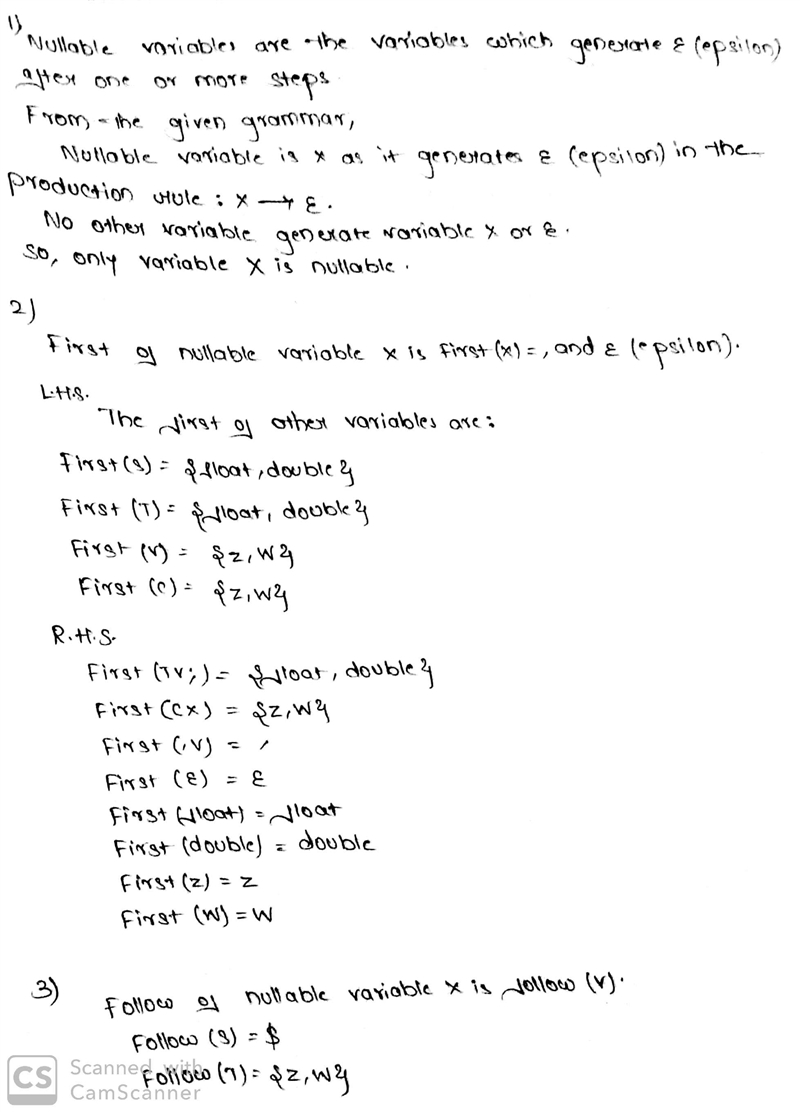 1)
Nullable variables are the variables which generate ε (epsilon)
after one or more steps
From the given grammar,
Nullable variable is x as it generates ε (epsilon) in the
production rule : x → ε.
No other variable generate variable x or ε.
So, only variable X is nullable.
2)
First of nullable variable x is First (x) = , and ε (epsilon).
L.H.S.
The first of other variables are :
First (S) = {float, double}
First (T) = {float, double}
First (V) = {z, w}
First (C) = {z, w}
R.H.S.
First (TV;) = {float, double}
First (CX) = {z, w}
First (,V) = ,
First (ε) = ε
First (float) = float
First (double) = double
First (z) = z
First (w) = w
3)
Follow of nullable variable x is follow (V).
Follow (S) = $
Follow (T) = {z, w}
CS Scanned with
CamScanner